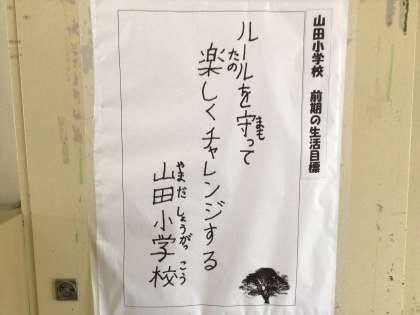 山田小学校　前期の生活目標
ルールを守って
まも
楽しくチャレンジする
たの
山田小学校
やまだしょうがっこう